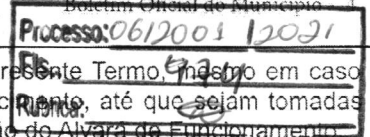 Boletim Oficial do Município
Processo: 0612001 / 2021
Fls.
resente Termo, mesmo em caso
cimento, até que sejam tomadas
Rubrica:
ão do Alvará de Funcionamento